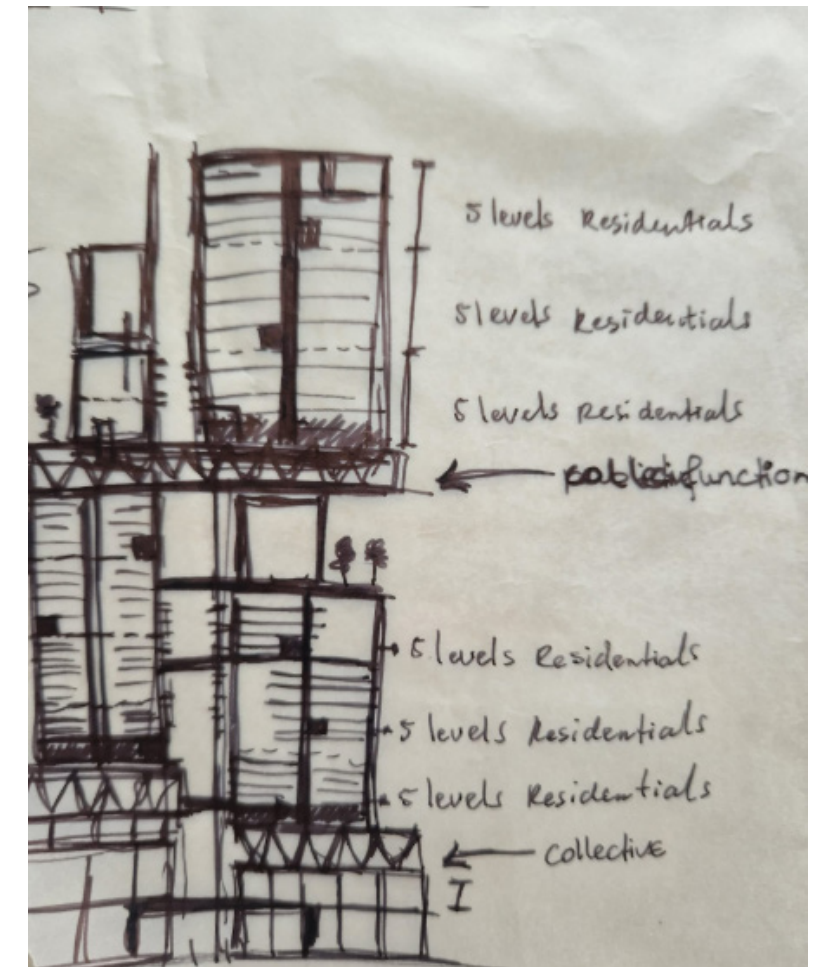 5 levels Residentials
5 levels Residentials
5 levels Residentials
function
5 levels Residentials
5 levels Residentials
5 levels Residentials
collective
I